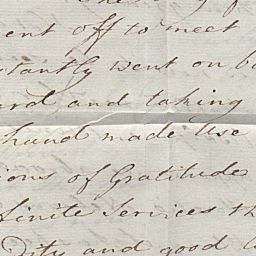 ent off to meet
stantly went on bo
ard, and taking
hand made use
ions of Gratitude
finite Services th
Dity and good